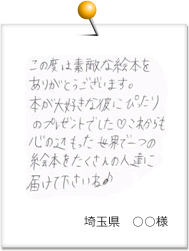 この度は素敵な絵本を
ありがとうございます。
本が大好きな彼にぴったり
のプレゼントでした♡これからも
心の込もった世界で一つの
絵本をたくさんの人達に
届けて下さいね♪
埼玉県 ○○様